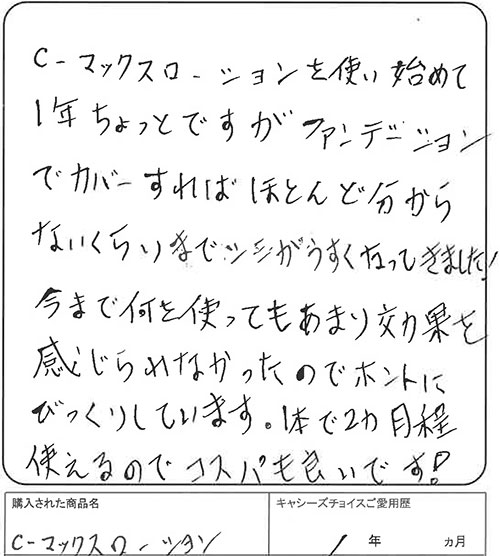 C-マックスローションを使い始めて
1年ちょっとですがファンデーション
でカバーすればほとんど分から
ないくらいまでシミがうすくなってきました!
今まで何を使ってもあまり効果を
感じられなかったのでホントに
びっくりしています。1本で2カ月程
使えるのでコスパも良いです!
購入された商品名
キャシーズチョイスご愛用歴
C-マックスローション
1年 ヵ月